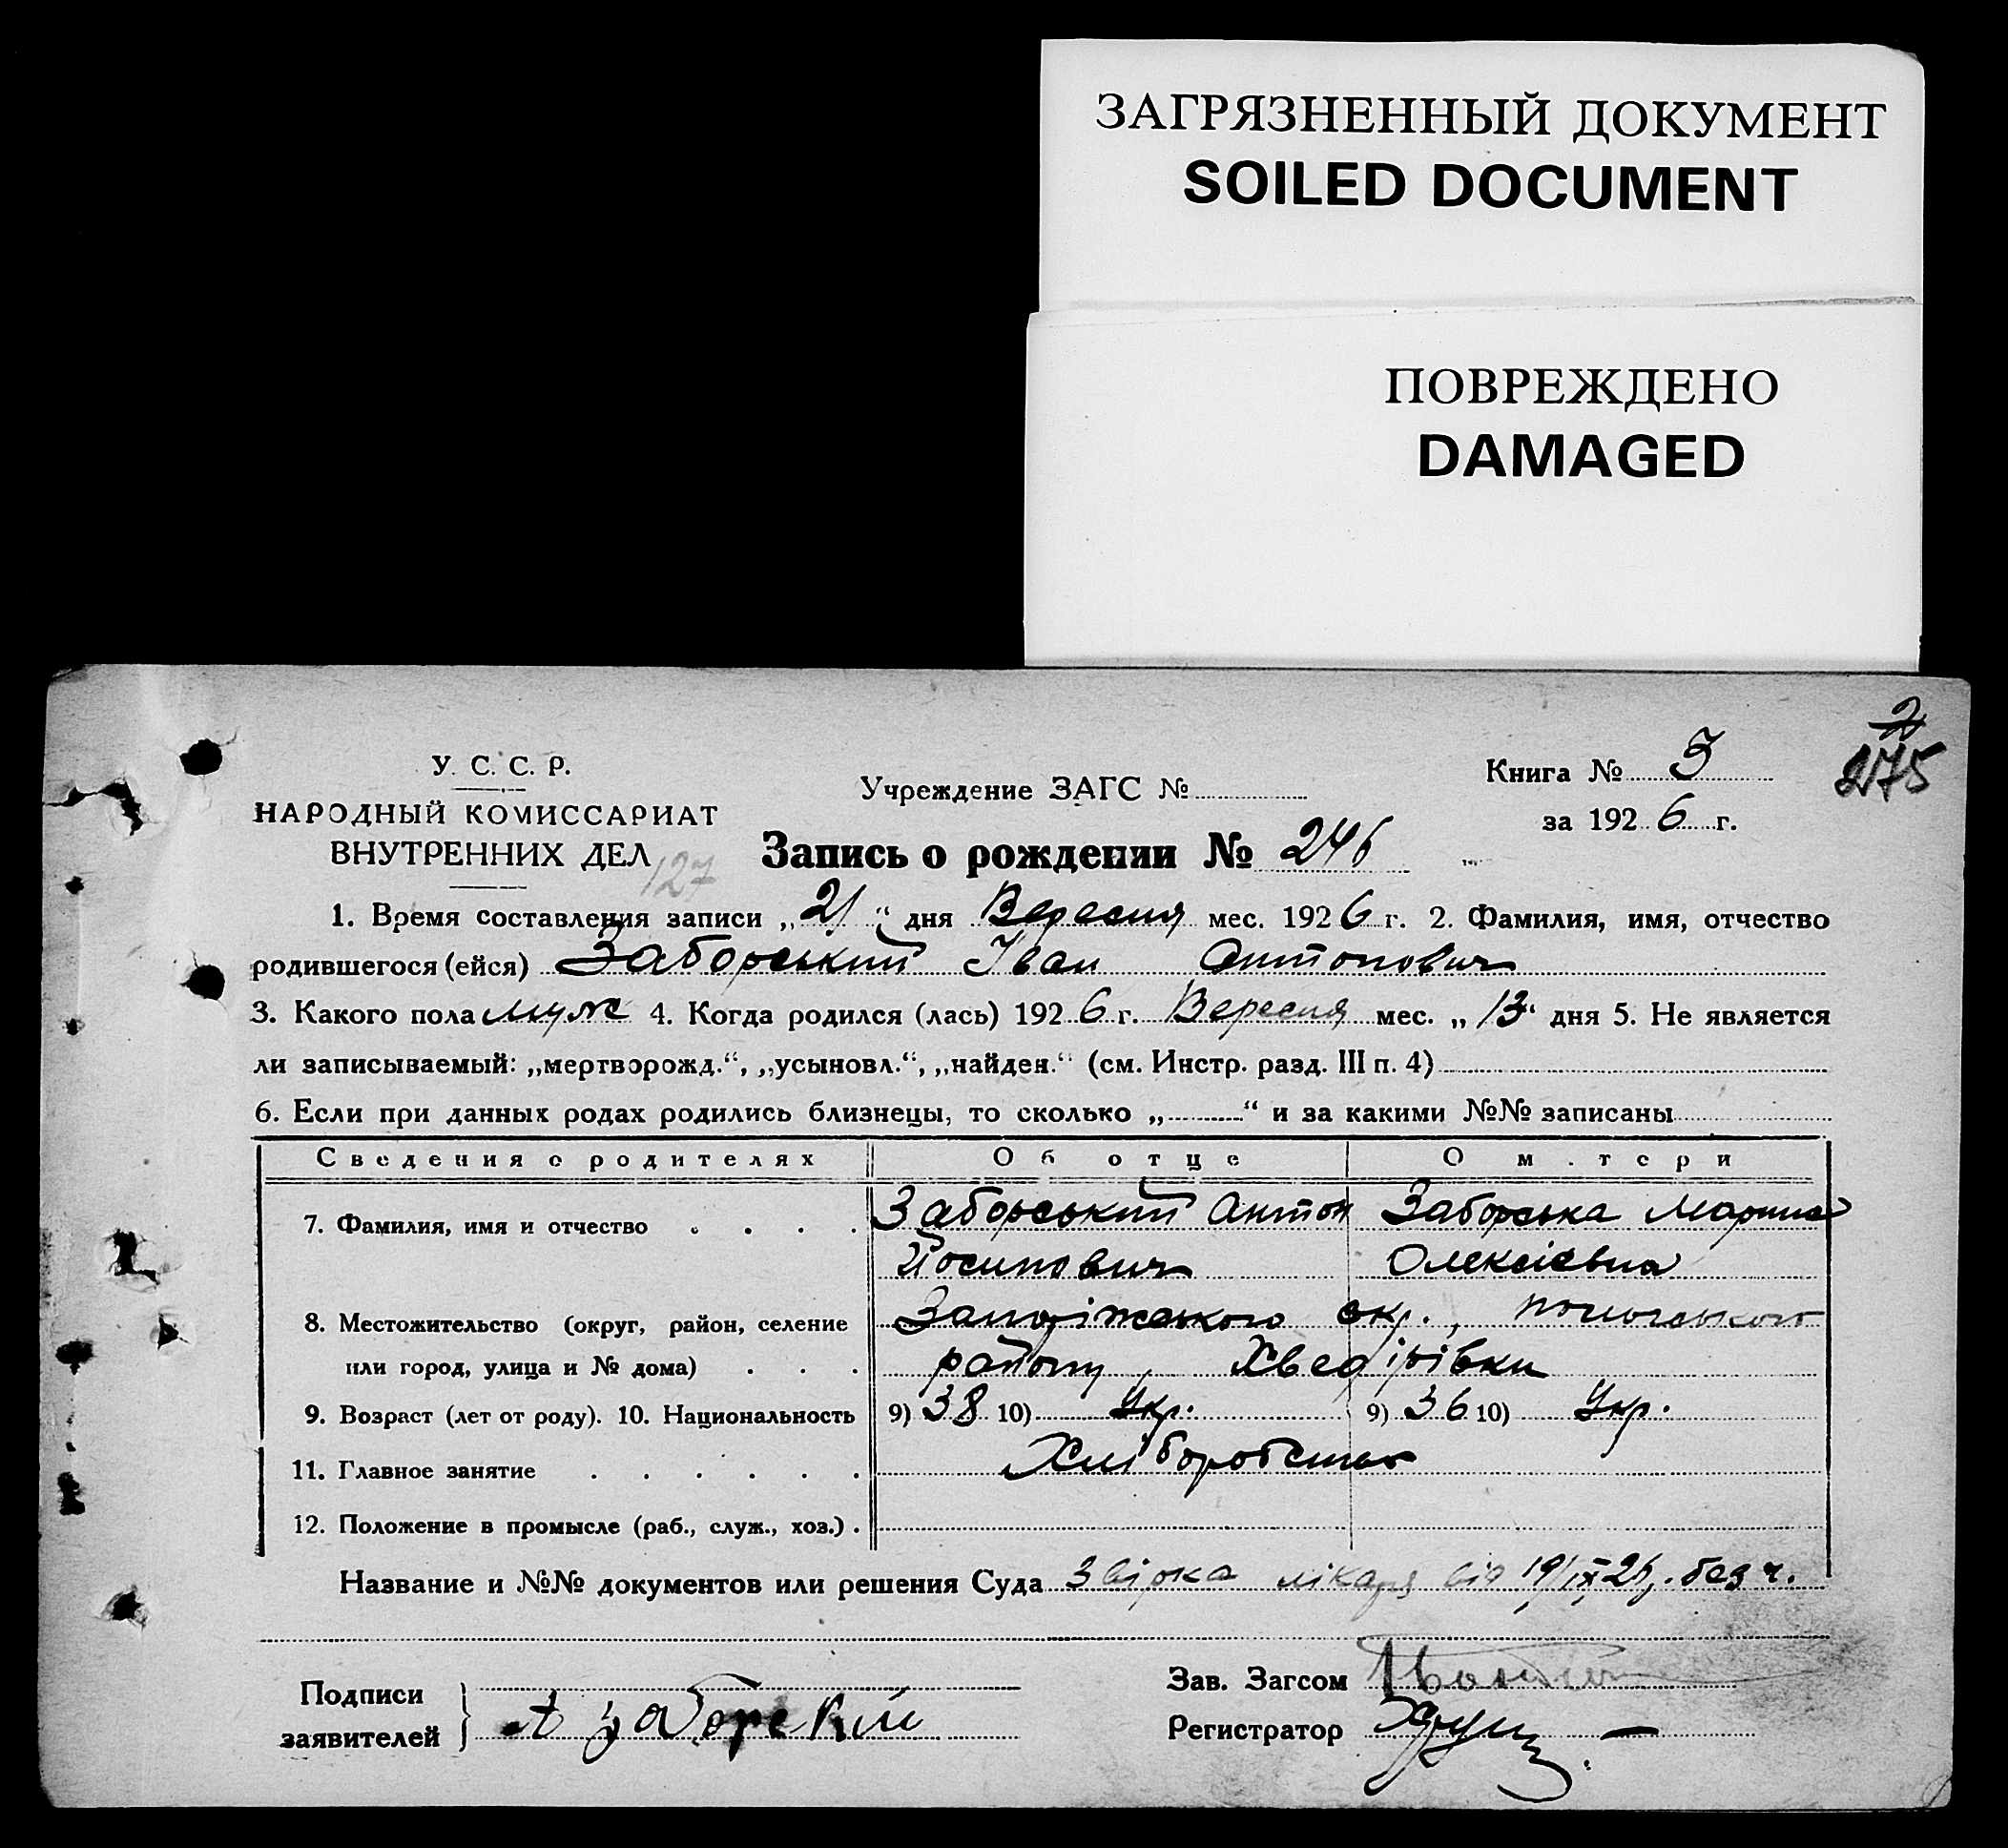 ЗАГРЯЗНЕННЫЙ ДОКУМЕНТ
SOILED DOCUMENT
ПОВРЕЖДЕНО
DAMAGED
2
275
У. С. С. Р.
НАРОДНЫЙ КОМИССАРИАТ
ВНУТРЕННИХ ДЕЛ
127
Учреждение ЗАГС №
Книга № 3
за 1926 г.
Запись о рождении № 246
1. Время составления записи „21“ дня Вересня мес. 1926 г. 2. Фамилия, имя, отчество
родившегося (ейся) Заборський Іван Антонович
3. Какого пола муж 4. Когда родился (лась) 1926 г. Вересня мес. „13“ дня 5. Не является
ли записываемый: „мертворожд.“, „усыновл.“, „найден.“ (см. Инстр. разд. III п. 4)
6. Если при данных родах родились близнецы, то сколько „ “ и за какими №№ записаны
Сведения о родителях Об отце О м.тери
7. Фамилия, имя и отчество Заборський Антон Заборська Марина
Йосипович Олексієвна
8. Местожительство (округ, район, селение Запоріжського окр.,
или город, улица и № дома) району, Хведірівки
9. Возраст (лет от роду). 10. Национальность 9) 38 10) Укр. 9) 36 10) Укр.
11. Главное занятие Хліборобство
12. Положение в промысле (раб., служ., хоз.)
Название и №№ документов или решения Суда лікаря від 19/IX 26, без ч.
Подписи
заявителей А Заборский
Зав. Загсом
Регистратор